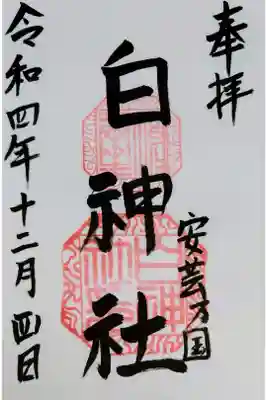 奉拝
白神社
安芸乃国
令和四年十二月四日